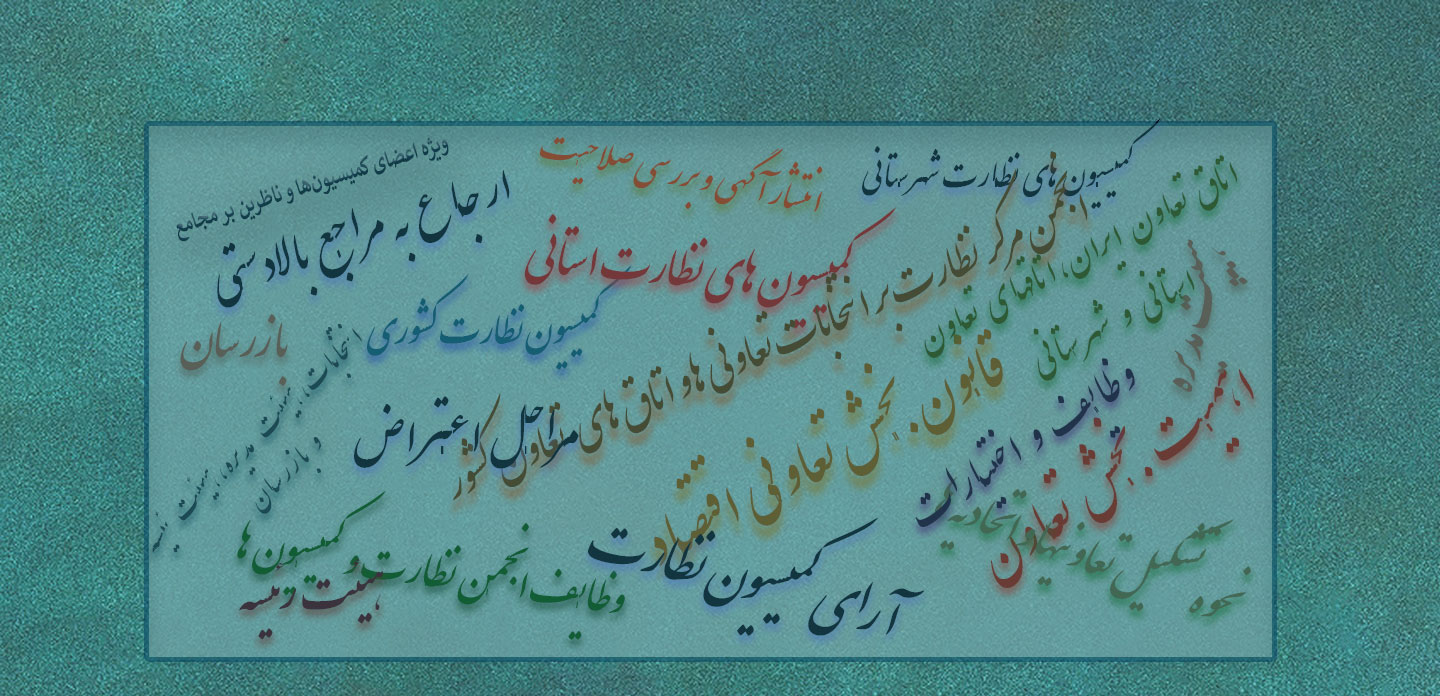 کمیسیون های نظارت شهرستانی
انتشار آگهی و بررسی صلاحیت
ویژه اعضای کمیسیون‌ها و ناظرین بر مجامع
ارجاع به مراجع بالادستی
اتاق تعاون ایران، اتاقهای تعاون
استانی و شهرستانی
انجمن مرکز نظارت بر انتخابات تعاونی ها و اتاق های تعاون کشور
کمیسون های نظارت استانی
کمیسیون نظارت کشوری
بازرسان
انتخابات هیئت مدیره، هیئت رئیسه
و بازرسان
مراحل اعتراض
قانون بخش تعاونی اقتصاد
وظایف و اختیارات
اهمیت بخش تعاون
نحوه تشکیل تعاونیها و اتحادیه
آرای کمیسیون نظارت
وظایف انجمن نظارت و کمیسون ها
هیئت رئیسه